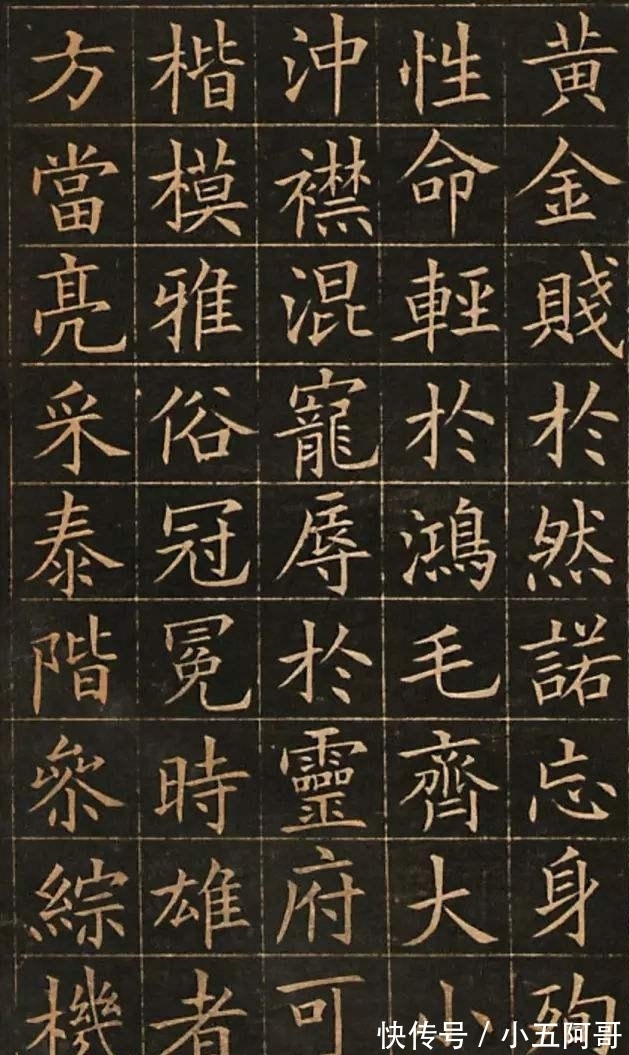 黄金賤於然諾忘身殉
性命輕於鴻毛齊大小
沖襟混寵辱於靈府可
楷模雅俗冠冕時雄者
方當亮采泰階叅綜機
快传号 / 小五阿哥